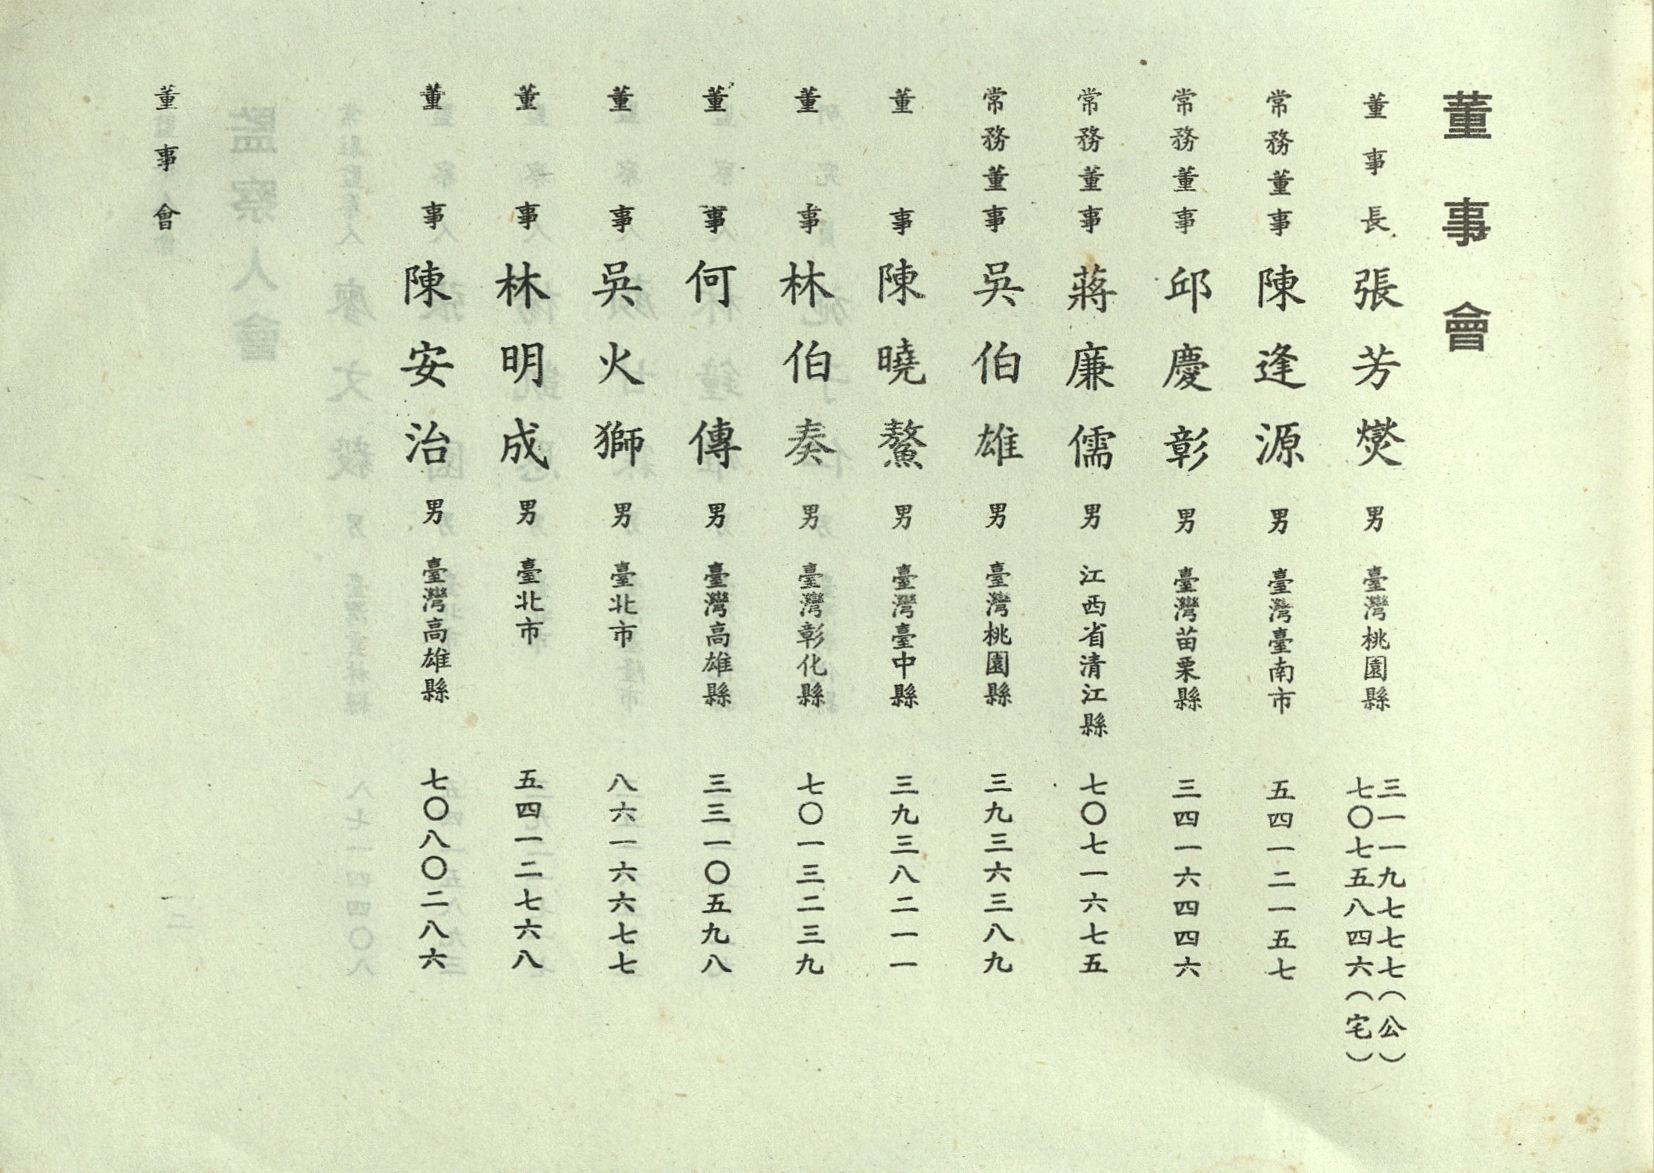 董事會
董事長 張芳燮 男 臺灣桃園縣 三一一九七七七(公)
七〇七五八四六(宅)
常務董事 陳逢源 男 臺灣臺南市 五四一二一五七
常務董事 邱慶彰 男 臺灣苗栗縣 三四一六四四六
常務董事 蔣廉儒 男 江西省清江縣 七〇七一六七五
常務董事 吳伯雄 男 臺灣桃園縣 三九三六三八九
董事 陳曉鰲 男 臺灣臺中縣 三九三八二一一
董事 林伯奏 男 臺灣彰化縣 七〇一三二三九
董事 何傳 男 臺灣高雄縣 三三一〇五九八
董事 吳火獅 男 臺北市 八六一六六七七
董事 林明成 男 臺北市 五四一二七六八
董事 陳安治 男 臺灣高雄縣 七〇八〇二八六
董事會